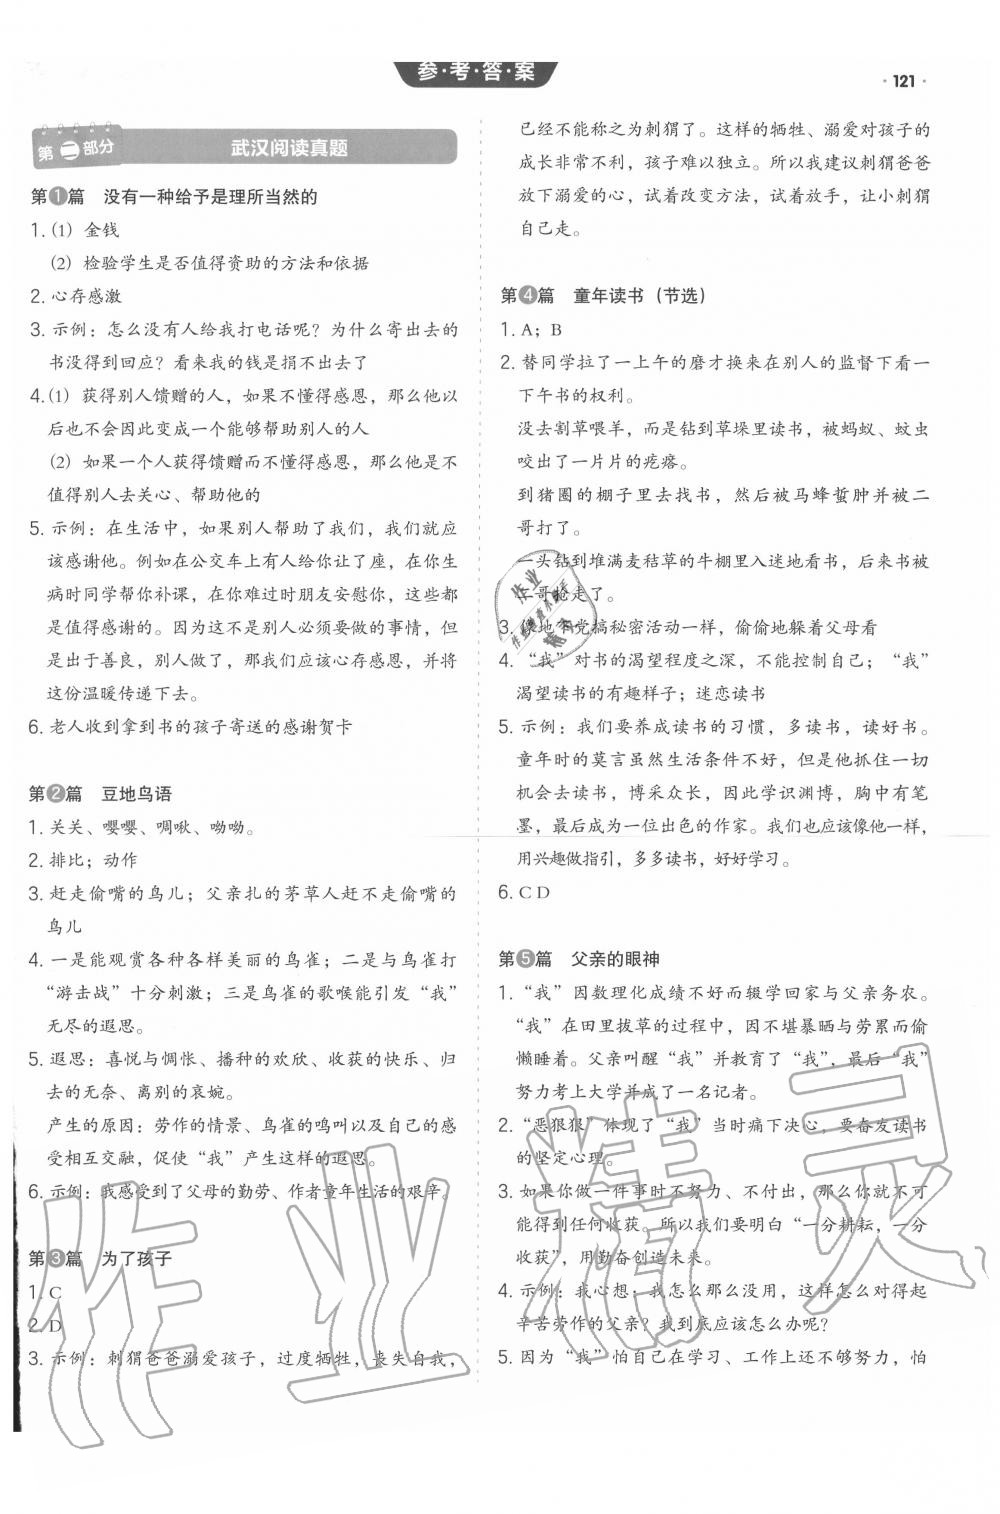 参·考·答·案
·121·
第二部分 武汉阅读真题
第1篇 没有一种给予是理所当然的
1. (1) 金钱
(2) 检验学生是否值得资助的方法和依据
2. 心存感激
3. 示例：怎么没有人给我打电话呢？为什么寄出去的
书没得到回应？看来我的钱是捐不出去了
4.(1) 获得别人馈赠的人，如果不懂得感恩，那么他以
后也不会因此变成一个能够帮助别人的人
(2) 如果一个人获得馈赠而不懂得感恩，那么他是不
值得别人去关心、帮助他的
5. 示例：在生活中，如果别人帮助了我们，我们就应
该感谢他。例如在公交车上有人给你让了座，在你生
病时同学帮你补课，在你难过时朋友安慰你，这些都
是值得感谢的。因为这不是别人必须要做的事情，但
是出于善良，别人做了，那我们应该心存感恩，并将
这份温暖传递下去。
6. 老人收到拿到书的孩子寄送的感谢贺卡
第2篇 豆地鸟语
1. 关关、嘤嘤、啁啾、呦呦。
2. 排比；动作
3. 赶走偷嘴的鸟儿；父亲扎的茅草人赶不走偷嘴的
鸟儿
4. 一是能观赏各种各样美丽的鸟雀；二是与鸟雀打
“游击战”十分刺激；三是鸟雀的歌喉能引发“我”
无尽的遐思。
5. 遐思：喜悦与惆怅、播种的欢欣、收获的快乐、归
去的无奈、离别的哀婉。
产生的原因：劳作的情景、鸟雀的鸣叫以及自己的感
受相互交融，促使“我”产生这样的遐思。
6. 示例：我感受到了父母的勤劳、作者童年生活的艰辛。
第3篇 为了孩子
1. C
2. D
3. 示例：刺猬爸爸溺爱孩子，过度牺牲，丧失自我，
已经不能称之为刺猬了。这样的牺牲、溺爱对孩子的
成长非常不利，孩子难以独立。所以我建议刺猬爸爸
放下溺爱的心，试着改变方法，试着放手，让小刺猬
自己走。
第4篇 童年读书（节选）
1. A；B
2. 替同学拉了一上午的磨才换来在别人的监督下看一
下午书的权利。
没去割草喂羊，而是钻到草垛里读书，被蚂蚁、蚊虫
咬出了一片片的疙瘩。
到猪圈的棚子里去找书，然后被马蜂蜇肿并被二
哥打了。
一头钻到堆满麦秸草的牛棚里入迷地看书，后来书被
二哥抢走了。
3. 像地下党搞秘密活动一样，偷偷地躲着父母看
4. “我”对书的渴望程度之深，不能控制自己；“我”
渴望读书的有趣样子；迷恋读书
5. 示例：我们要养成读书的习惯，多读书，读好书。
童年时的莫言虽然生活条件不好，但是他抓住一切
机会去读书，博采众长，因此学识渊博，胸中有笔
墨，最后成为一位出色的作家。我们也应该像他一样，
用兴趣做指引，多多读书，好好学习。
6. C D
第5篇 父亲的眼神
1. “我”因数理化成绩不好而辍学回家与父亲务农。
“我”在田里拔草的过程中，因不堪暴晒与劳累而偷
懒睡着。父亲叫醒“我”并教育了“我”，最后“我”
努力考上大学并成了一名记者。
2. “恶狠狠”体现了“我”当时痛下决心，要奋发读书
的坚定心理。
3. 如果你做一件事时不努力、不付出，那么你就不可
能得到任何收获。所以我们要明白“一分耕耘，一分
收获”，用勤奋创造未来。
4. 示例：我心想：我怎么那么没用，这样怎么对得起
辛苦劳作的父亲？我到底应该怎么办呢？
5. 因为“我”怕自己在学习、工作上还不够努力，怕
作业精灵